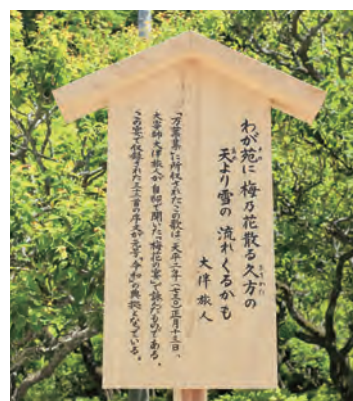 わが苑に 梅乃花散る久方の
天より雪の 流れくるかも
大伴旅人
「万葉集」に所収されたこの歌は、天平二年(七三〇)正月十三日、
大宰師大伴旅人が自邸で開いた「梅花の宴」で詠んだものである。
この宴で収録された三二首の序文が元号「令和」の典拠となっている。